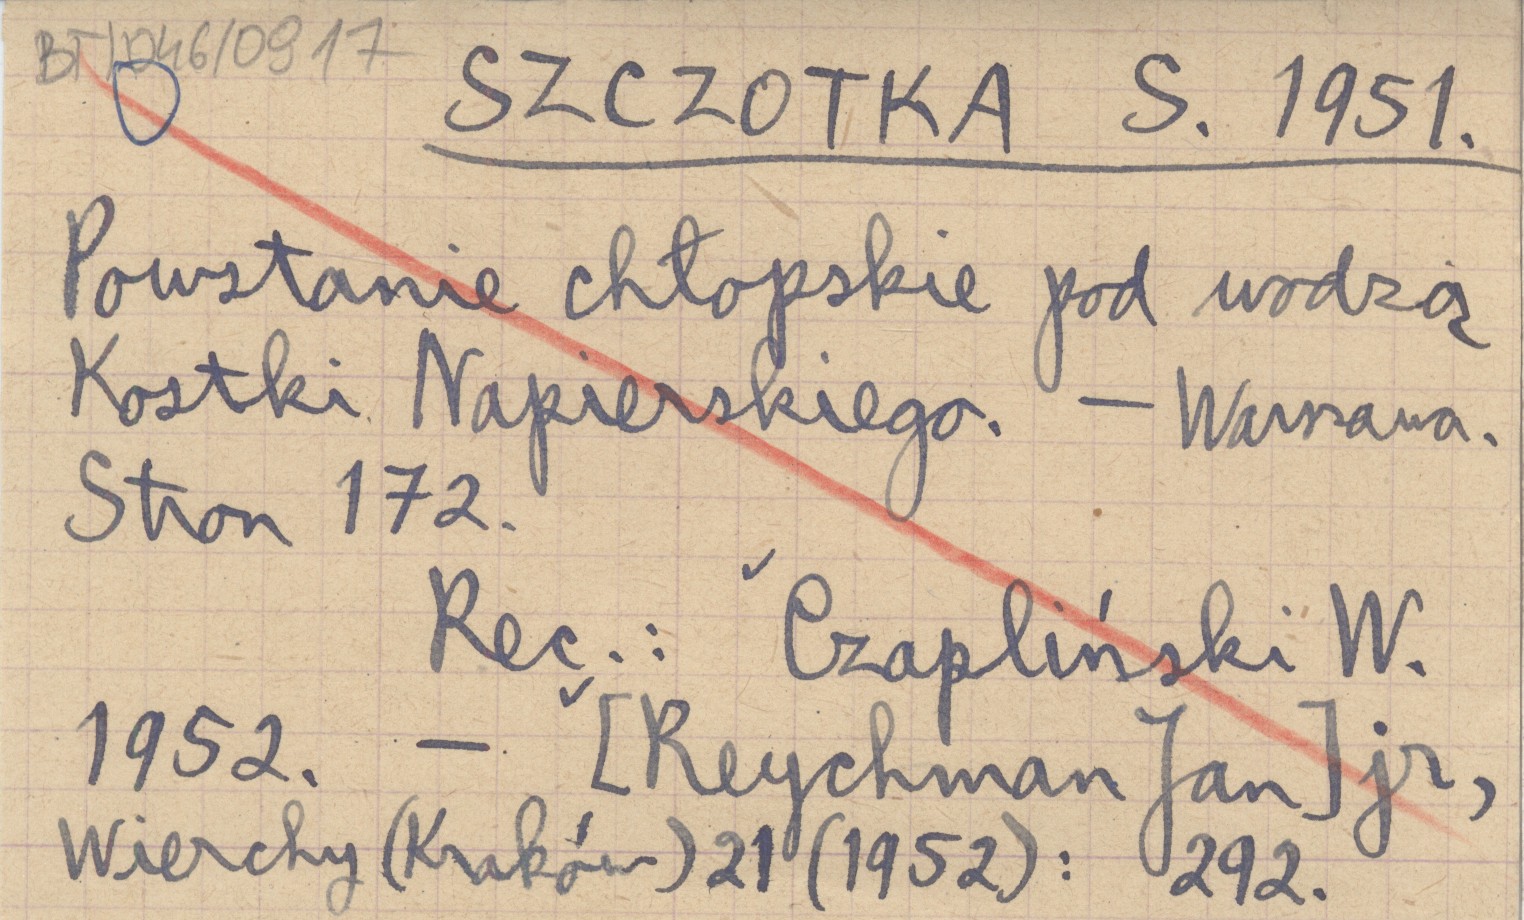 BT/046/0917
SZCZOTKA S. 1951.
Powstanie chłopskie pod wodzą
Kostki Napierskiego. — Warszawa.
Stron 172.
Rec.: Czapliński W.
1952. — [Reychman Jan] jr,
Wierchy (Kraków) 21 (1952): 292.